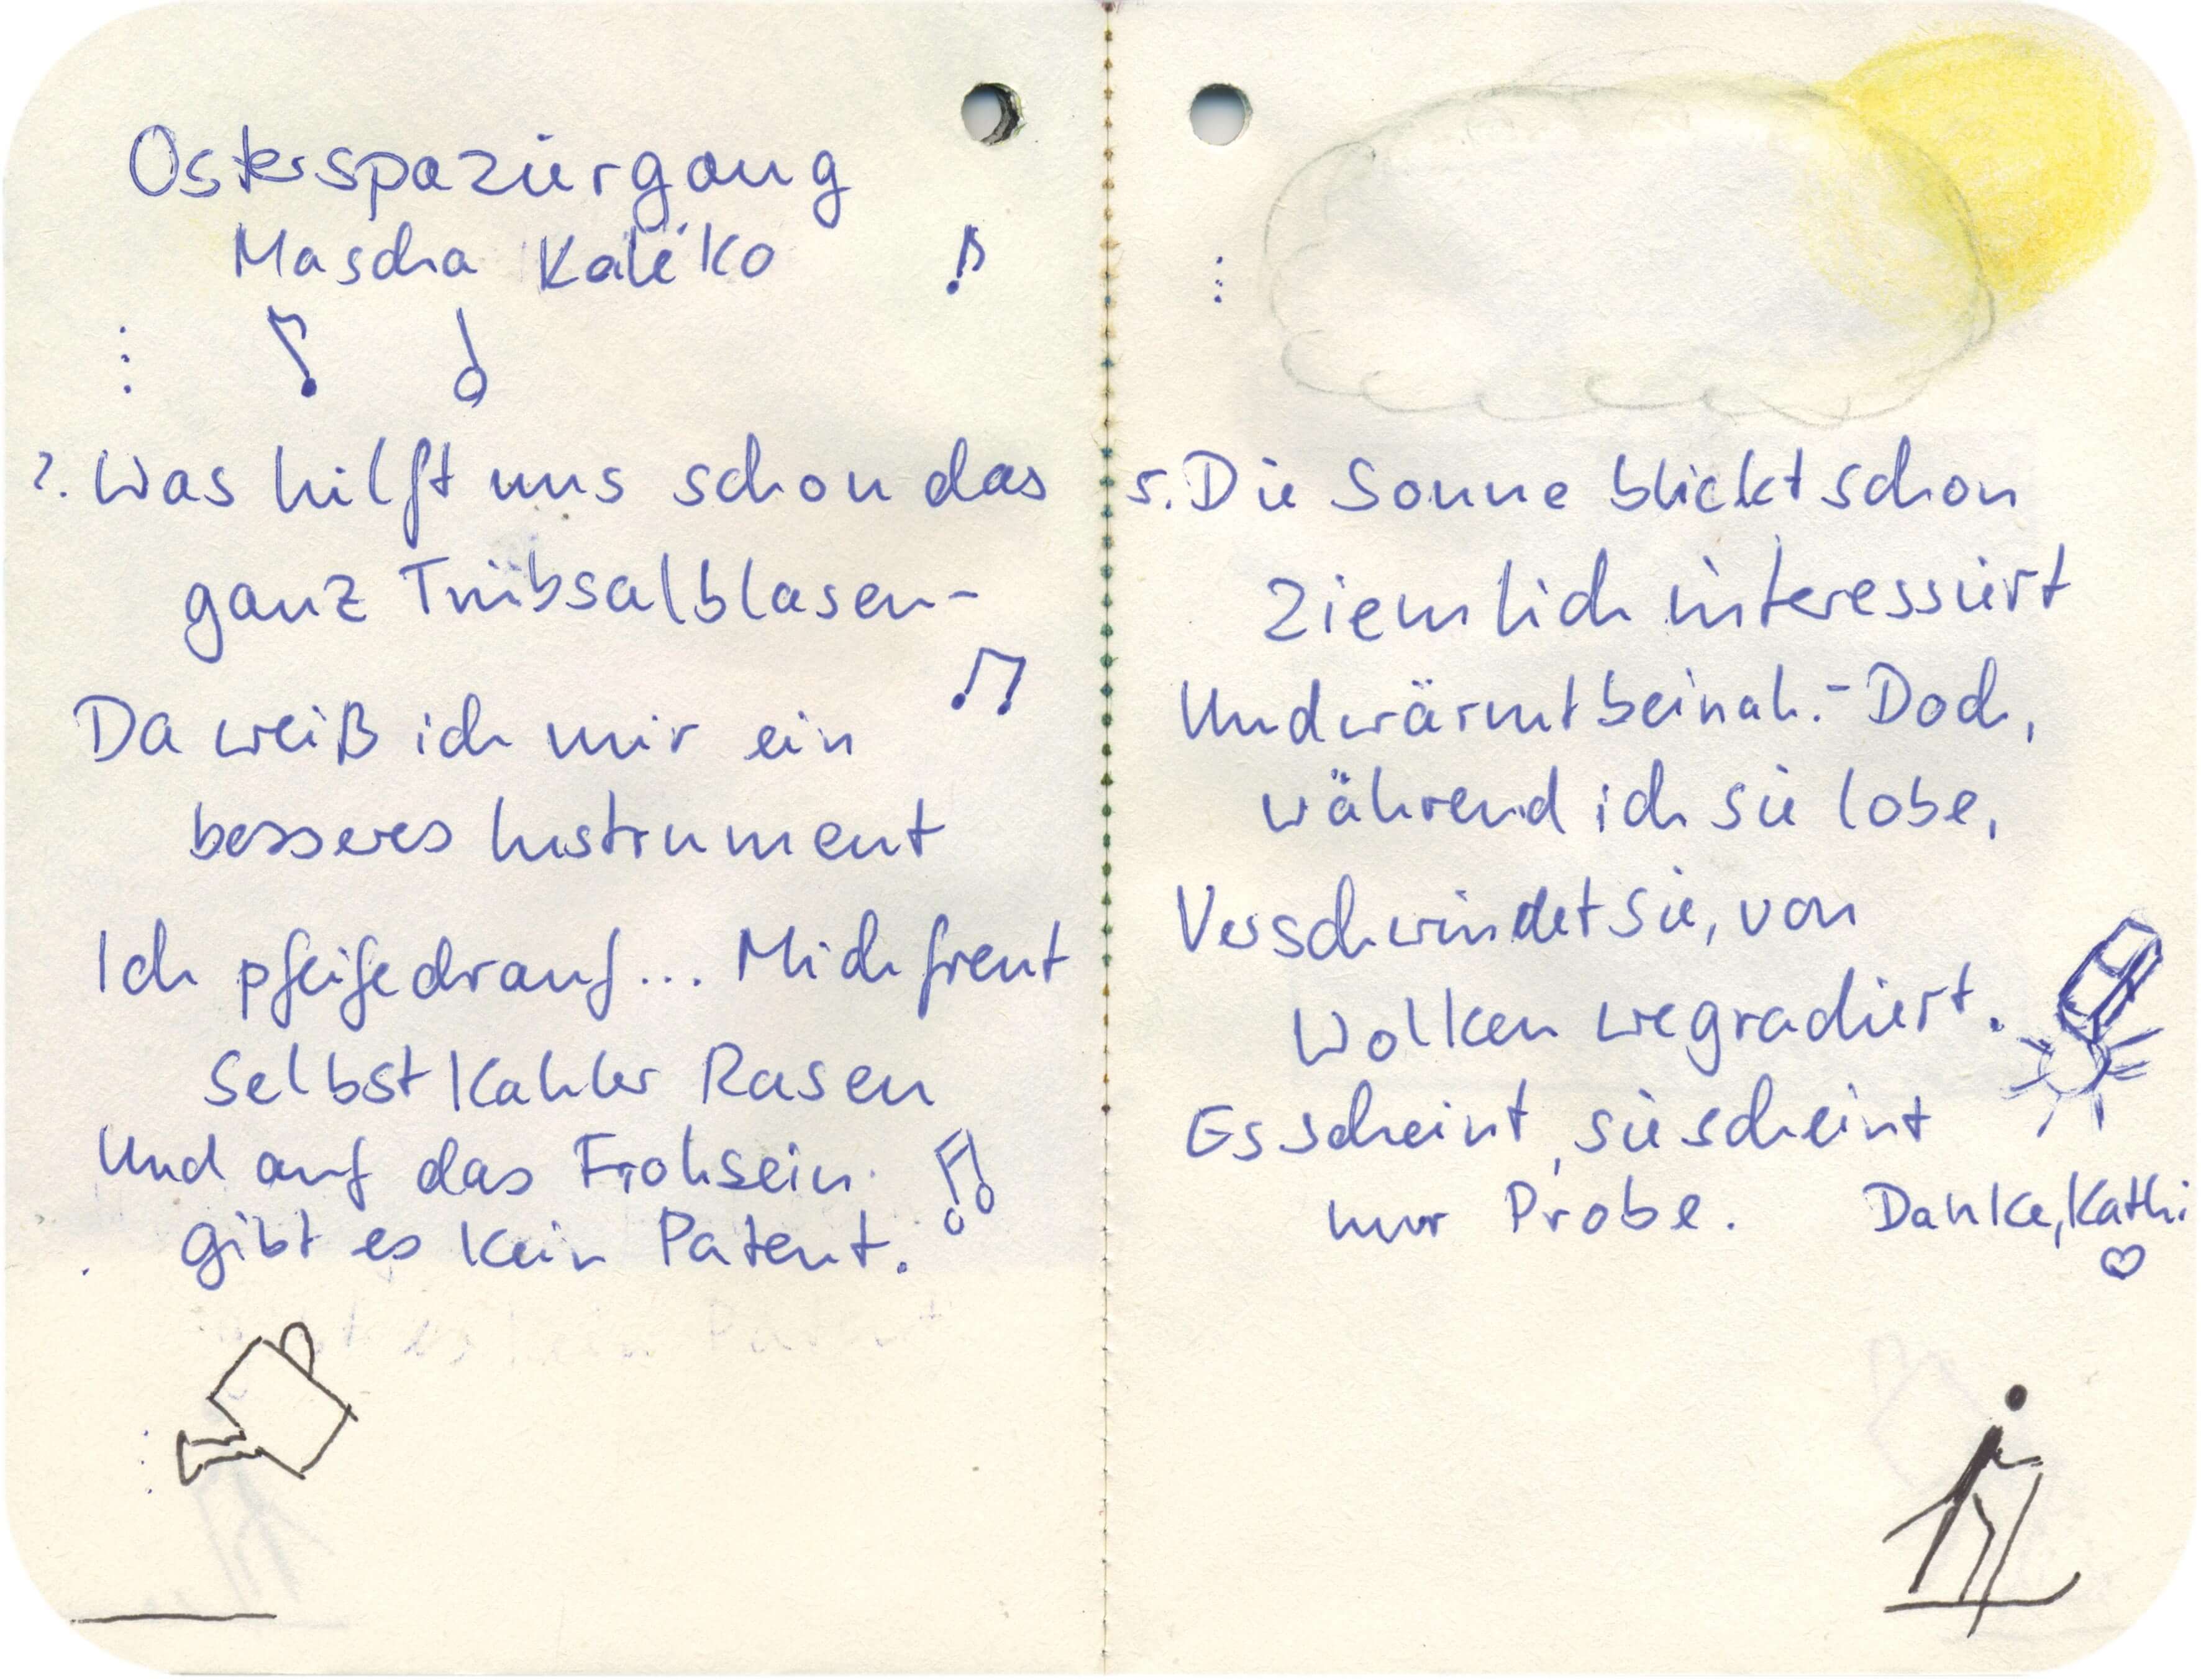 Osterspaziergang
Mascha Kaléko
⋮
2. Was hilft uns schon das
ganz Trübsalblasen-
Da weiß ich mir ein
besseres Instrument
Ich pfeife drauf... Mich freut
selbst kahler Rasen
Und auf das Frohsein
gibt es kein Patent.
⋮
5. Die Sonne blickt schon
ziemlich interessiert
Und wärmt beinah.- Doch,
während ich sie lobe,
Verschwindet sie, von
Wolken wegradiert.
Es scheint, sie scheint
nur Probe.
Danke, Kathi ♡